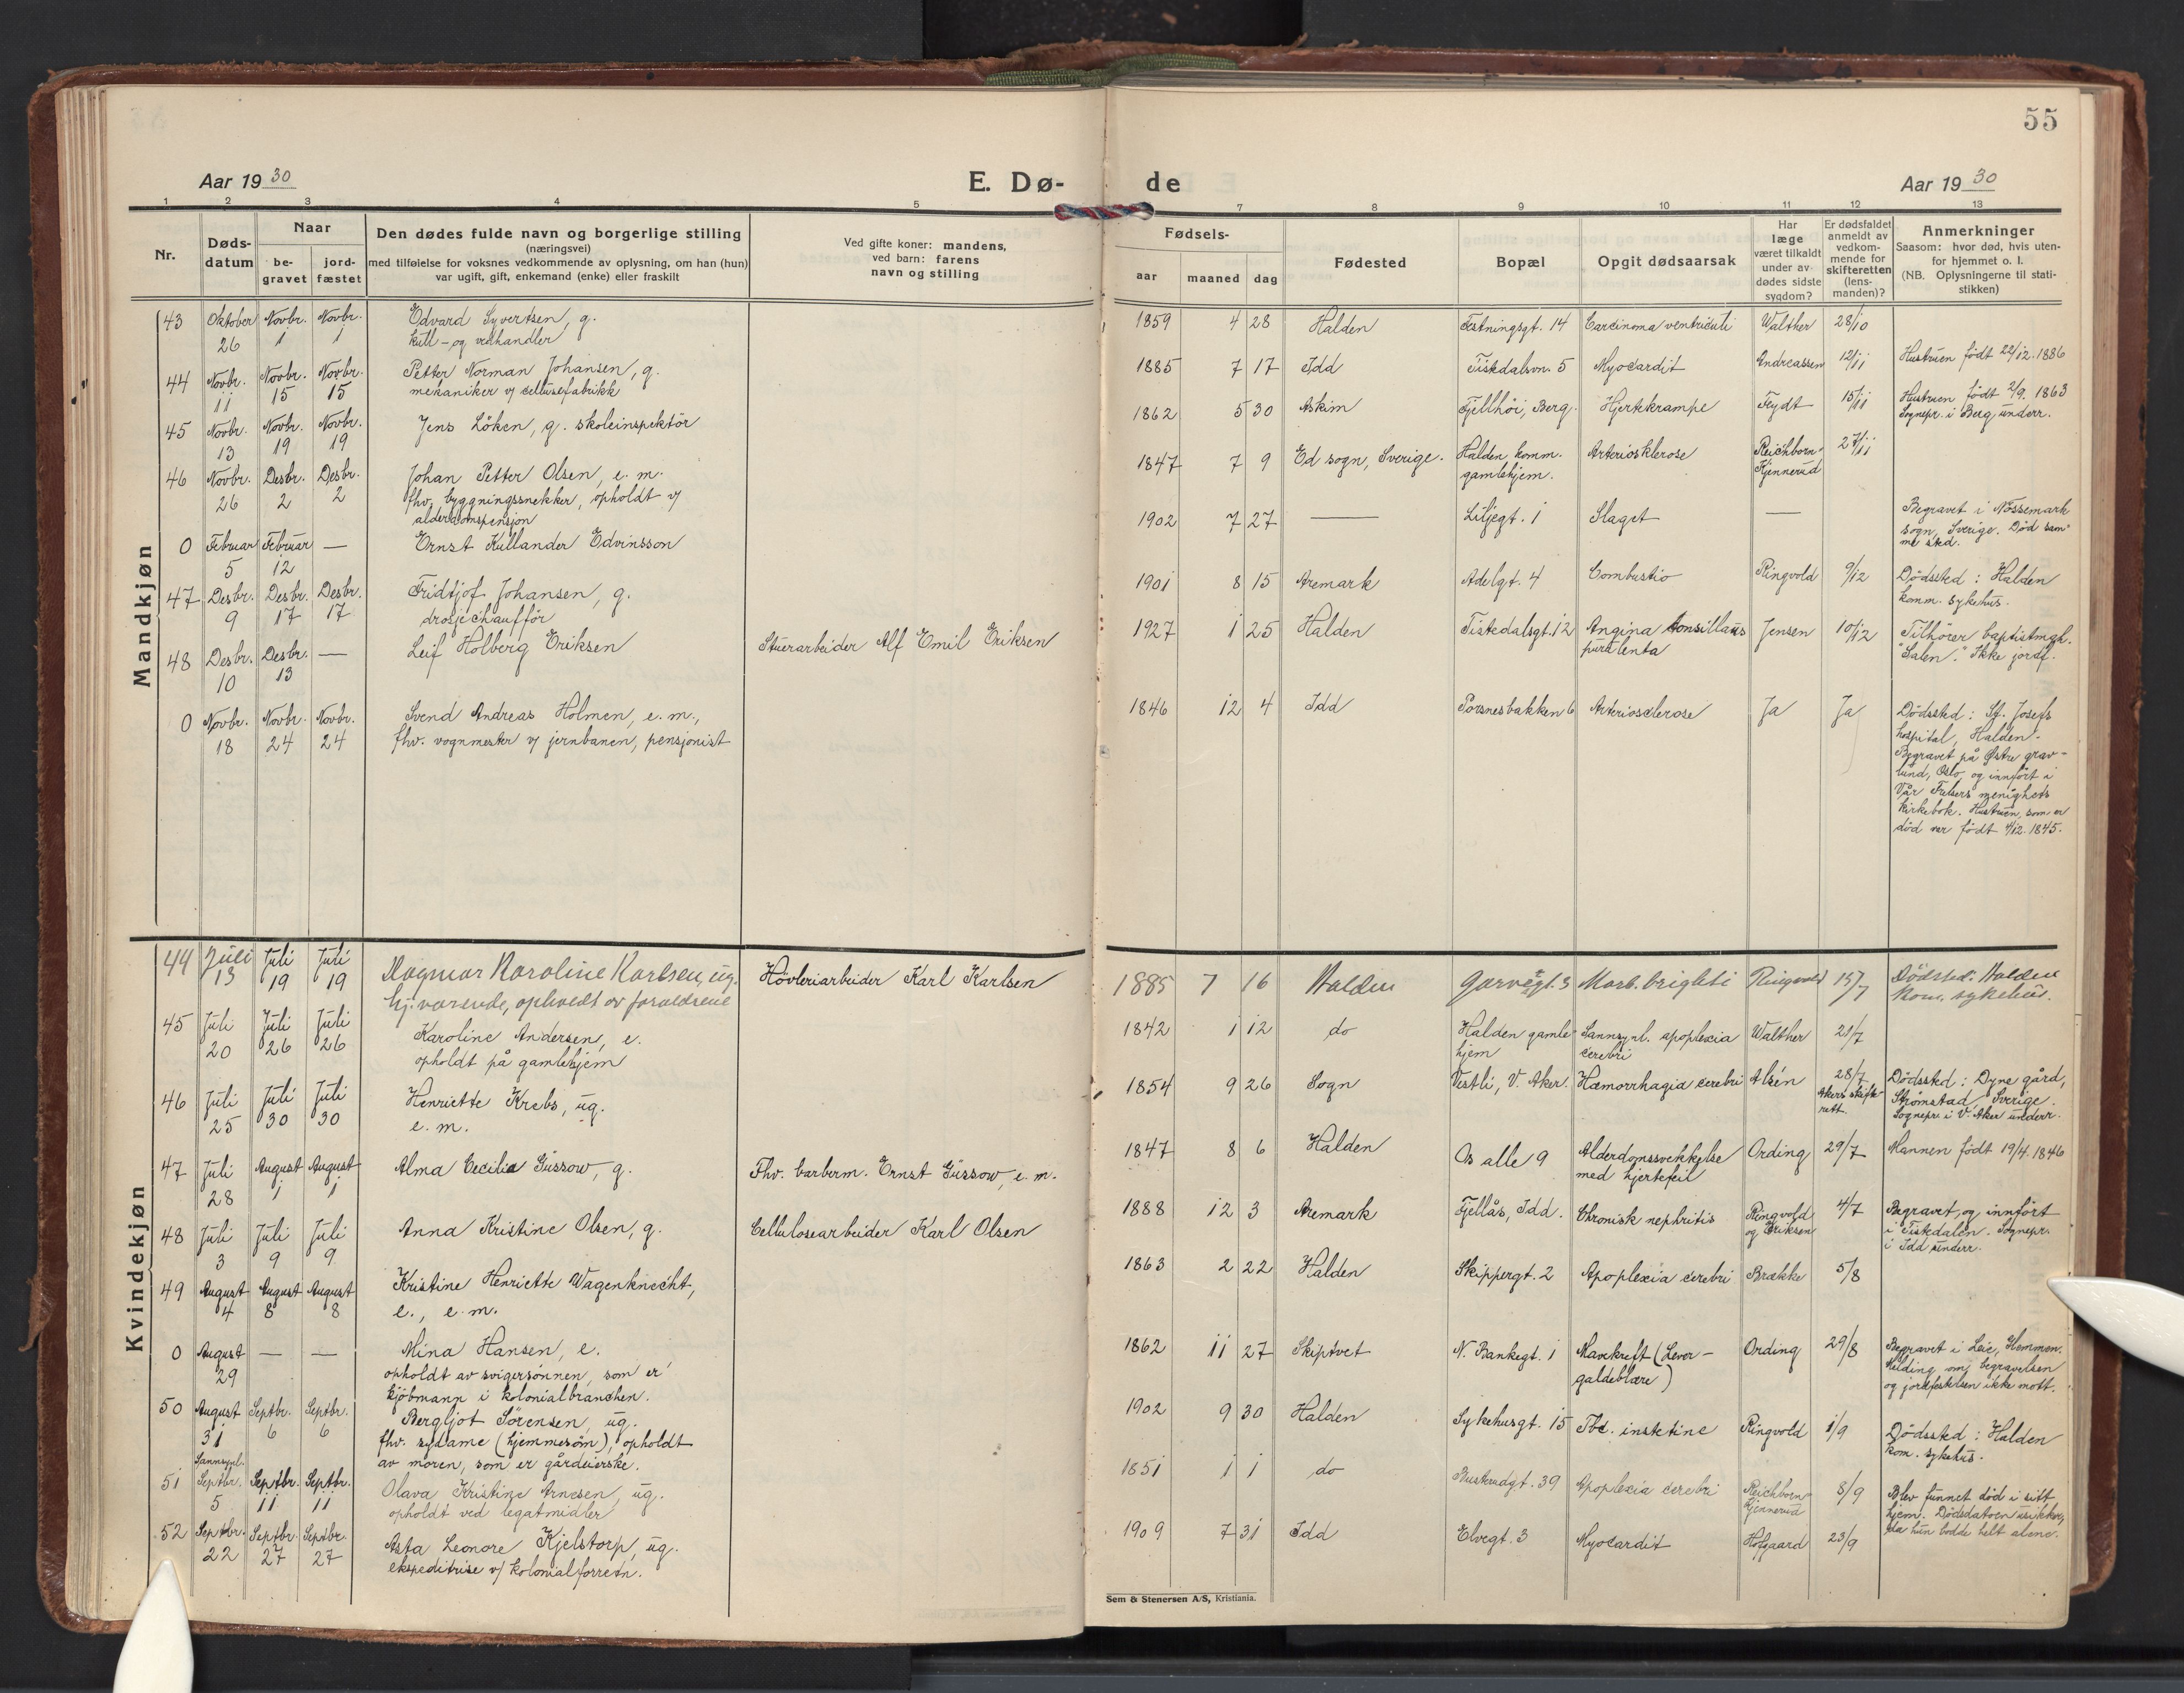 55
Aar 19 30
E. Dø-
de
Aar 19 30
1 2 3 4 5
7 8 9 10 11 12 13
Nr.
Døds-
datum
Naar
be-
gravet
jord-
fæstet
Den dødes fulde navn og borgerlige stilling
(næringsvei)
med tilføielse for voksnes vedkommende av oplysning, om han (hun)
var ugift, gift, enkemand (enke) eller fraskilt
Ved gifte koner: mandens,
ved barn: farens
navn og stilling
Fødsels-
aar maaned dag
Fødested
Bopæl
Opgit dødsaarsak
Har
læge
været tilkaldt
under av-
dødes sidste
sygdom?
Er dødsfaldet
anmeldt av
vedkom-
mende for
skifteretten
(lens-
manden)?
Anmerkninger
Saasom: hvor død, hvis uten-
for hjemmet o. l.
(NB. Oplysningerne til stati-
stikken)
Mandkjøn
43 Oktober Novbr. Novbr. Edvard Syvertsen, g.
26 1 1 kull- og vedhandler
1859 4 28 Halden Festningsgt. 14 Carcinoma ventriculi Walther 28/10
44 Novbr. Novbr. Novbr. Petter Norman Johansen, g.
11 15 15 mekaniker v/ cellulsefabrikk
1885 7 17 Idd Tistedalsvn. 5 Myocardit Andreassen 12/11 Hustruen født 22/12.1886
45 Novbr. Novbr. Novbr. Jens Löken, g. skoleinspektör
13 19 19
1862 5 30 Askim Fjellhöi, Berg. Hjertekrampe Feydt 15/11 Hustruen født 2/9. 1863
Sognepr. i Berg underr.
46 Novbr. Desbr. Desbr. Johan Petter Olsen, e. m.
26 2 2 fhv. byggningssnekker, opholdt v/
alderdomspensjon
1847 7 9 Ed sogn, Sverige. Halden komm. Arteriosklerose Reichborn- 27/11
gamlehjem. Kjennerud
0 Februar Februar — Ernst Kullander Edvinsson
5 12
1902 7 27 — Liljegt. 1 Slaget — Begravet i Nössemark
sogn, Sverige. Död sam-
me sted.
47 Desbr. Desbr. Desbr. Fridtjof Johansen, g.
9 17 17 drosjechaufför
1901 8 15 Aremark Adelgt. 4 Combustio Ringvold 9/12 Dödssted: Halden
komm. sykehus.
48 Desbr. Desbr. — Leif Holberg Eriksen Stuerarbeider Alf Emil Eriksen
10 13
1927 1 25 Halden Tistedalsgt. 12 Angina tonsillaris Jensen 10/12 Tilhörer baptistmgh.
purulenta "Salen." Ikke jordf.
0 Novbr. Novbr. Novbr. Svend Andreas Holmen, e. m.,
18 24 24 fhv. vognmester v/ jernbanen, pensjonist
1846 12 4 Idd Porsnesbakken 6 Arteriosclerose Ja Ja Dödssted: St. Josefs
hospital, Halden.
Begravet på Østre grav-
lund, Oslo, og innfört i
Vår Frelsers menighets
kirkebok. Hustruen, som er
död var født 4/12.1845.
Kvindekjøn
44 Juli Juli Juli Dagmar Karoline Karlsen, ug. Hövleriarbeider Karl Karlsen
13 19 19 hj. værende, opholdt av foreldrene
1885 7 16 Halden Garverigt. 3 Morb. brighti Ringvold 15/7 Dödssted: Halden
kom. sykehus.
45 Juli Juli Juli Karoline Andersen, e.
20 26 26 opholdt på gamlehjem
1842 1 12 do Halden gamle- Sannsynl. apoplexia Walther 21/7
hjem cerebri
46 Juli Juli Juli Henriette Krebs, ug.
25 30 30 e. m.
1854 9 26 Sogn Vestli, V. Aker. Hæmorrhagia cerebri Alsén 28/7 Dödssted: Dyne gård,
Akers skifte- Strömstad, Sverige.
rett. Sognepr. i V. Aker underr.
47 Juli August August Alma Cecilia Güssow, g. Fhv. barberm. Ernst Güssow, e. m.
28 1 1
1847 8 6 Halden Os alle 9 Alderdomssvekkelse Ording 29/7 Mannen født 19/4.1846
med hjertefeil
48 Juli Juli Juli Anna Kristine Olsen, g. Cellulosearbeider Karl Olsen
3 9 9
1888 12 3 Aremark Fjellås, Idd. Chronisk nephritis Ringvold 4/7 Begravet og innfört
og Eriksen i Tistedalen. Sognepr.
i Idd underr.
49 August August August Kristine Henriette Wagenknecht,
4 8 8 e., e. m.
1863 2 22 Halden Skippergt. 2 Apoplexia cerebri Brække 5/8
0 August — — Mina Hansen, e.
29 opholdt av svigersönnen, som er
kjöbmann i kolonialbranchen.
1862 11 27 Skiptvet N. Bankegt. 1 Mavekreft (Lever- Ording 29/8 Begravet i Leie, Hemmen.
galdeblære) Melding om begravelsen
og jordfestelsen ikke mott.
50 August Septbr. Septbr. Bergljot Sörensen, ug.
31 6 6 fhv. sydame (hjemmesöm), opholdt
av moren, som er gårdeierske.
1902 9 30 Halden Sykehusgt. 15 Tbc. instetine Ringvold 1/9 Dödssted: Halden
kom. sykehus.
Sannsynl.
51 Septbr. Septbr. Septbr. Olava Kristine Arnesen, ug.
5 11 11 opholdt ved legatmidler
1851 1 1 do Buskrudgt. 39 Apoplexia cerebri Reichborn- 8/9 Blev funnet död i sitt
Kjennerud hjem. Dödsdatoen usikker,
da hun bodde helt alene.
52 Septbr. Septbr. Septbr. Asta Leonore Kjelstorp, ug.
22 27 27 ekspeditrise v/ kolonialforretn.
1909 7 31 Idd Elvegt. 3 Myocardit Hofgaard 23/9
Sem & Stenersen A/S, Kristiania.